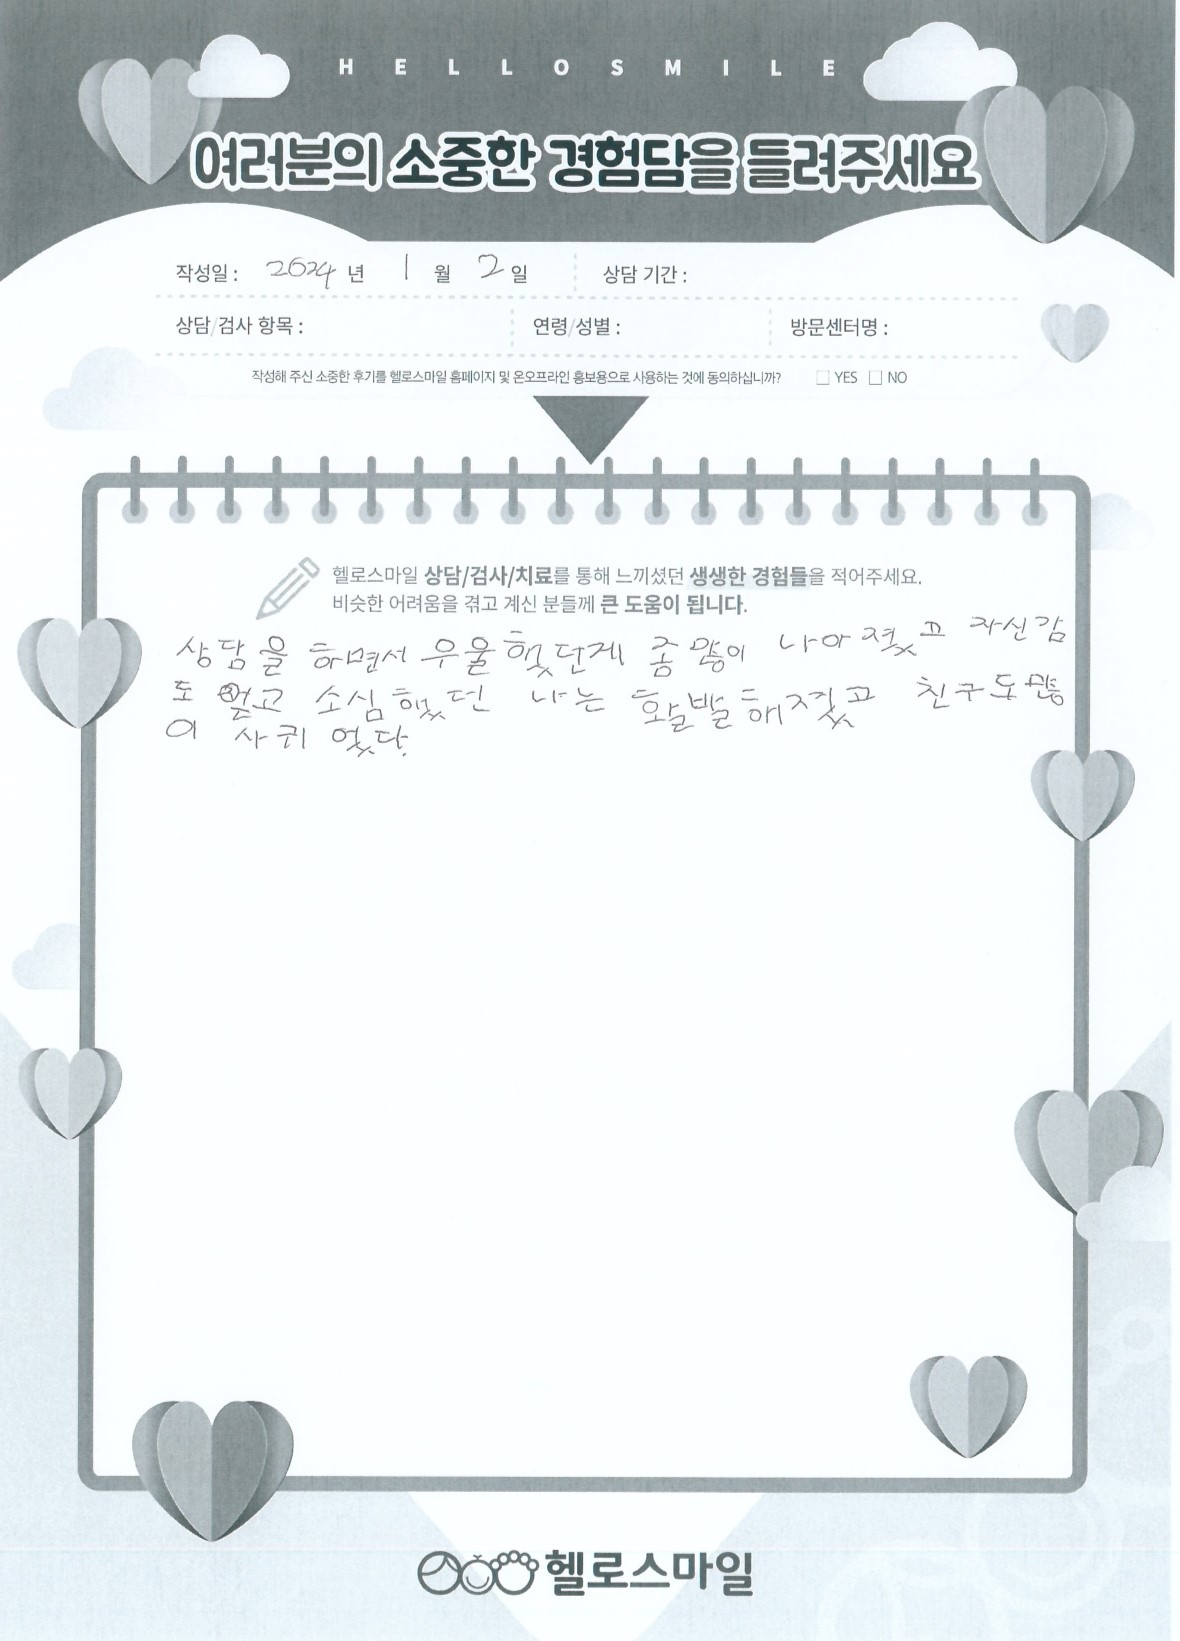 HELLOSMILE
여러분의 소중한 경험담을 들려주세요
작성일 : 2024 년 1 월 2 일 상담 기간 :
상담/검사 항목 : 연령/성별 : 방문센터명 :
작성해 주신 소중한 후기를 헬로스마일 홈페이지 및 온오프라인 홍보용으로 사용하는 것에 동의하십니까? □ YES □ NO
헬로스마일 상담/검사/치료를 통해 느끼셨던 생생한 경험들을 적어주세요.
비슷한 어려움을 겪고 계신 분들께 큰 도움이 됩니다.
상담을 하면서 우울했단게 좀 많이 나아졌고 자신감
도 얻고 소심했던 나는 활발해졌고 친구도 많
이 사귀었다.
헬로스마일